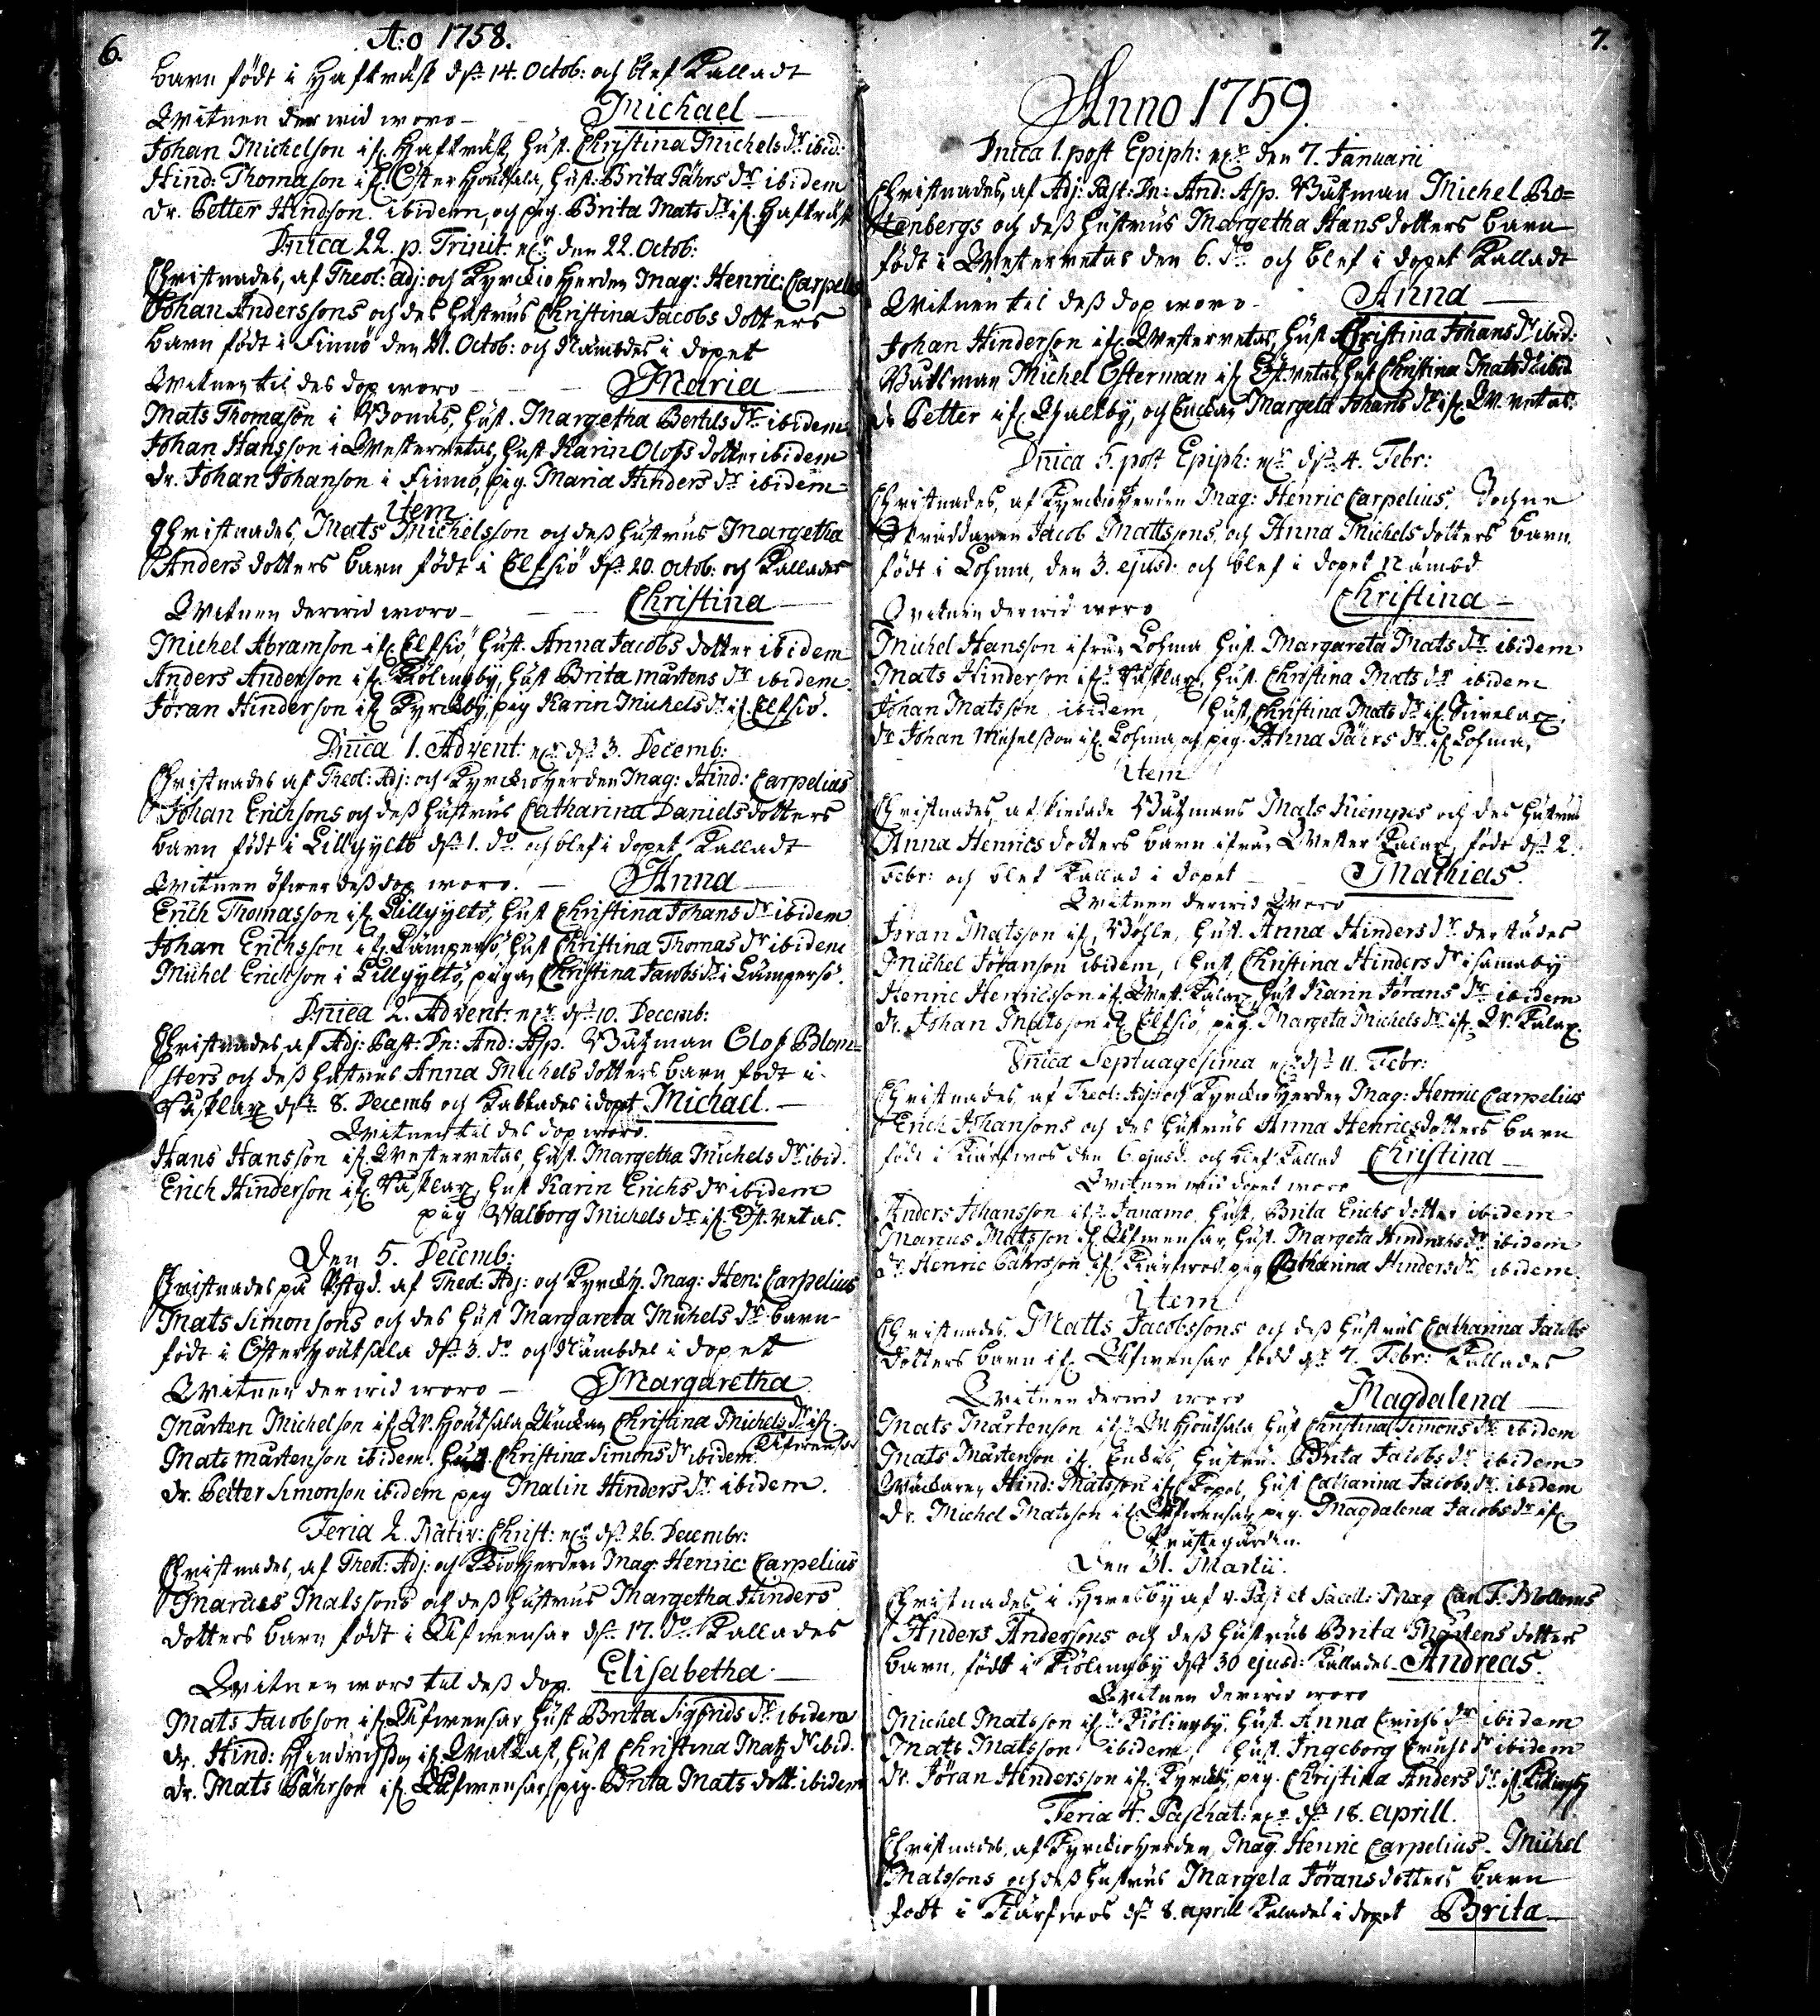 6.
A:o 1758.
barn födt i Hafträsk d. 14. Octob: och blef kalladt
Michael
Witnen der wid woro
Johan Michelson if. Hafträsk, Hust. Christina Michels dr ibid:
Hind: Thomason if. Öster Houtsala, Hust: Brita Pährs dr ibidem
dr. Petter Hindson ibidem, och pig. Brita Mats dr if. Hafträsk
Dnica 22. p. Trinit: den 22. Octob:
Christnades, af Theol: adj: och Kyrckio Herden Mag: Henric: Carpelius
Johan Anderssons och des Hustrus Christina Jacobs dotters
barn födt i Finnö den 21. Octob: och Nämbdes i dopet
Witnen til des dop woro
Maria
Mats Thomason i Bonäs, Hust. Margetha Bertils dr ibidem
Johan Hansson i Westerretais, Hust Karin Olofs dotter ibidem
dr. Johan Johanson i Finnö, pig. Maria Hinders dr ibidem
item
Christnades, Mats Michelsson och deß Hustrus Margetha
Anders dotters barn födt i Elfsiö d. 20. Octob: och kallades
Witnen derwid woro
Christina
Michel Abramson if. Elfsiö, Hust. Anna Jacobs dotter ibidem
Anders Anderson if. Kiölingby, Hust Brita Mårtens dr ibidem
Jöran Hinderson if. Kyrckby, pig Karin Michels dr if. Elfsiö.
Dnica 1. Advent: d. 3. Decemb:
Christnades af Theol: Adj: och Kyrckio Herden Mag: Hind: Carpelius
Johan Erichsons och deß Hustrus Catharina Daniels dotters
barn födt i Lillgyltö d. 1. do och blef i dopet kalladt
Witnen öfwer deß dop woro.
Anna
Erich Thomasson if. Lillgyltö, Hust Christina Johans dr ibidem
Johan Erichsson if. Lämpersö Hust Christina Thomas dr ibidem
Michel Erichson i Lillgyltö, pigan Christina Jacobs dr i Lämpersö.
Dnica 2. Advent: d. 10. Decemb:
Christnades af Adj: Past: Dn: And: Asp. Båtzman Olof Blom-
sters och deß Hustrus Anna Michels dotters barn födt i
Wäsklax d. 8. Decemb och kallades i dopet Michael.
Witnen til des dop woro.
Hans Hansson if. Westerretais, Hust. Margetha Michels dr ibid.
Erich Hinderson if. Wäsklax, Hust Karin Erichs dr ibidem
pig Walborg Michels dr if. Öst. retais.
Den 5. Decemb:
Christnades på Pstgd. af Theol: Adj: och Kyrckh. Mag: Hen: Carpelius
Mats Simonsons och des Hust Margareta Michels dr barn
födt i Öster Houtsala d. 3. do och Nämbdes i dopet
Witnen der wid woro
Margaretha
Mårten Michelson if. W. Houtsala Enckan Christina Michels dr if.
Mats Mårtenson ibidem. Hust. Christina Simons dr ibidem.
dr. Petter Simonson ibidem pig Malin Hinders dr ibidem.
Feria 2. Nativ: Christ: d. 26. Decembr:
Christnades, af Theol: Adj: och Kkioherden Mag: Henric: Carpelius
Marcus Matssons och deß Hustrus Margetha Hinders
dotters barn födt i Ulfwensar d. 17. do. Kallades
Witnen woro til deß dop.
Elisabetha
Mats Jacobson if. Ulfwensar Hust Brita Sigfrids dr ibidem
dr. Hind: Hendrichson if. Walkast, Hust Christina Matz dr ibid.
dr. Mats Pährson if. Ulfwensar, pig. Brita Mats dott. ibidem
7.
Anno 1759.
Dnica 1. post Epiph: den 7. Januarii
Christnades, af Adj: Past: Dn: And: Asp. Båtzman Michel Bo=
tenbergs och deß Hustrus Margetha Hans dotters barn
födt i Westerretais den 6. do och blef i dopet kalladt
Witnen til deß dop woro
Anna
Johan Hinderson if. Westerretais, Hust Christina Johans dr ibid:
Båtsman Michel Österman if. Öst. retais, Hust Christina Mats dr ibid
dr Petter if. Walkby, och Enckan Margeta Johans dr if. W. retais.
Dnica 5. post Epiph: d. 4. Febr:
Christnades, af Kyrckio Herden Mag: Henric Carpelius, Sochne
Skräddaren Jacob Mattssons, och Anna Michels dotters barn,
födt i Lohma, den 3. ejusd: och blef i dopet nämbd
Witnen derwid woro
Christina
Michel Hansson ifrån Lohma Hust. Margareta Mats dr ibidem
Mats Hinderson if. Wäsklax, Hust. Christina Mats dr ibidem
Johan Matsson ibidem, Hust, Christina Mats dr if.
dr Johan Michelsson if. Lohma, och pig. Anna Pairs dr if. Lohma,
item
Christnades, afskiedade Båtzmans Mats Kiempes och des Hustrus
Anna Henrics dotters barn ifrån Wester Kalax, född d. 2.
Febr: och blef kallad i dopet
Mathias.
Witnen derwid Woro
Jöran Matsson if. Böhle, Hust. Anna Hinders dr der städes
Michel Jöranson ibidem, Hust, Christina Hinders dr i samaby
Henric Henricsson if. West. Kalax, Hust Karin Jörans dr ibidem
dr. Johan Matsson if. Elfsiö, pig. Margeta Michels dr if. W. Kalax.
Dnica Septuagesima d. 11. Febr:
Christnades, af Theol: Adj: och Kyrckio Herden Mag: Henric Carpelius
Erich Johansons och des Hustrus Anna Henricsdotters barn
födt i Kiärfwos den 6. ejusd. och blef kallad Christina
Witnen wid dopet woro
Anders Johansson if. Janamo, Hust. Brita Erichs dotter ibidem
Marcus Matsson if. Ulfwensar, Hust. Margeta Hindrichs dr ibidem
dr. Henric Pährsson if. Kiärfwos, pig Catharina Hinders dr ibidem.
item
Christnades, Matts Jacobssons och deß Hustrus Catharina Jacobs
dotters barn if. Ulfwensar född d. 7. Febr: Kallades
Witnen derwid woro
Magdalena
Mats Mårtenson if. W Houtsala Hust Christina Simons dr ibidem
Mats Mårtenson if. Endas, Hustru Brita Jacobs dr ibidem
Hind: Matsson if. Kopos, Hust Catharina Jacobs dr ibidem
dr. Michel Matsson if. Ulfwensar, pig. Magdalena Jacobs dr if.
Prästegården.
Den 31. Martii.
Christnades i Hwesby af v. Past et Sacell: Mag Carl F. Mollerus
Anders Andersons och deß Hustrus Brita Mårtens dotters
barn, födt i Kiölingby d. 30 ejusd: kallades Andreas.
Witnen derwid woro
Michel Matsson if. Kiölingby, Hust. Anna Erichs dr ibidem
Mats Matsson ibidem, Hust. Ingeborg Erichs dr ibidem
dr. Jöran Hindersson if. Kyrckby, pig. Christina Anders dr if. Kiölingby
Feria 4. Paschat: d. 18. Aprill.
Christnades, af Kyrckio Herden, Mag. Henric Carpelius. Michel
Matssons och deß Hustrus Margeta Jörans dotters barn
födt i Kiärfwos d. 8. aprill kalades i dopet Brita